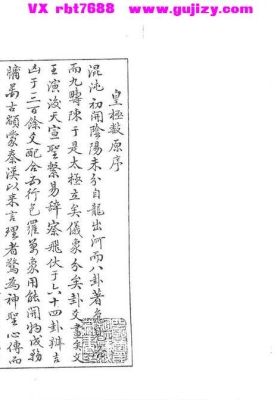 VX rbt7688 www.gujizy.com
皇極數原序
混沌初開陰陽未分自龍出河而八卦著
而九疇陳于是太極立矣儀象分矣卦爻畫矣文
王演液天宣聖繫易辭察飛伏于六十四卦辨吉
凶于三百餘爻配合五行包羅萬象用能開物成務
牖萬古顓蒙秦漢以来言理者驚為神聖心傳而